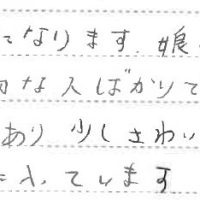 になります。娘
な人ばかりで
あり 少しさわい
に入っています